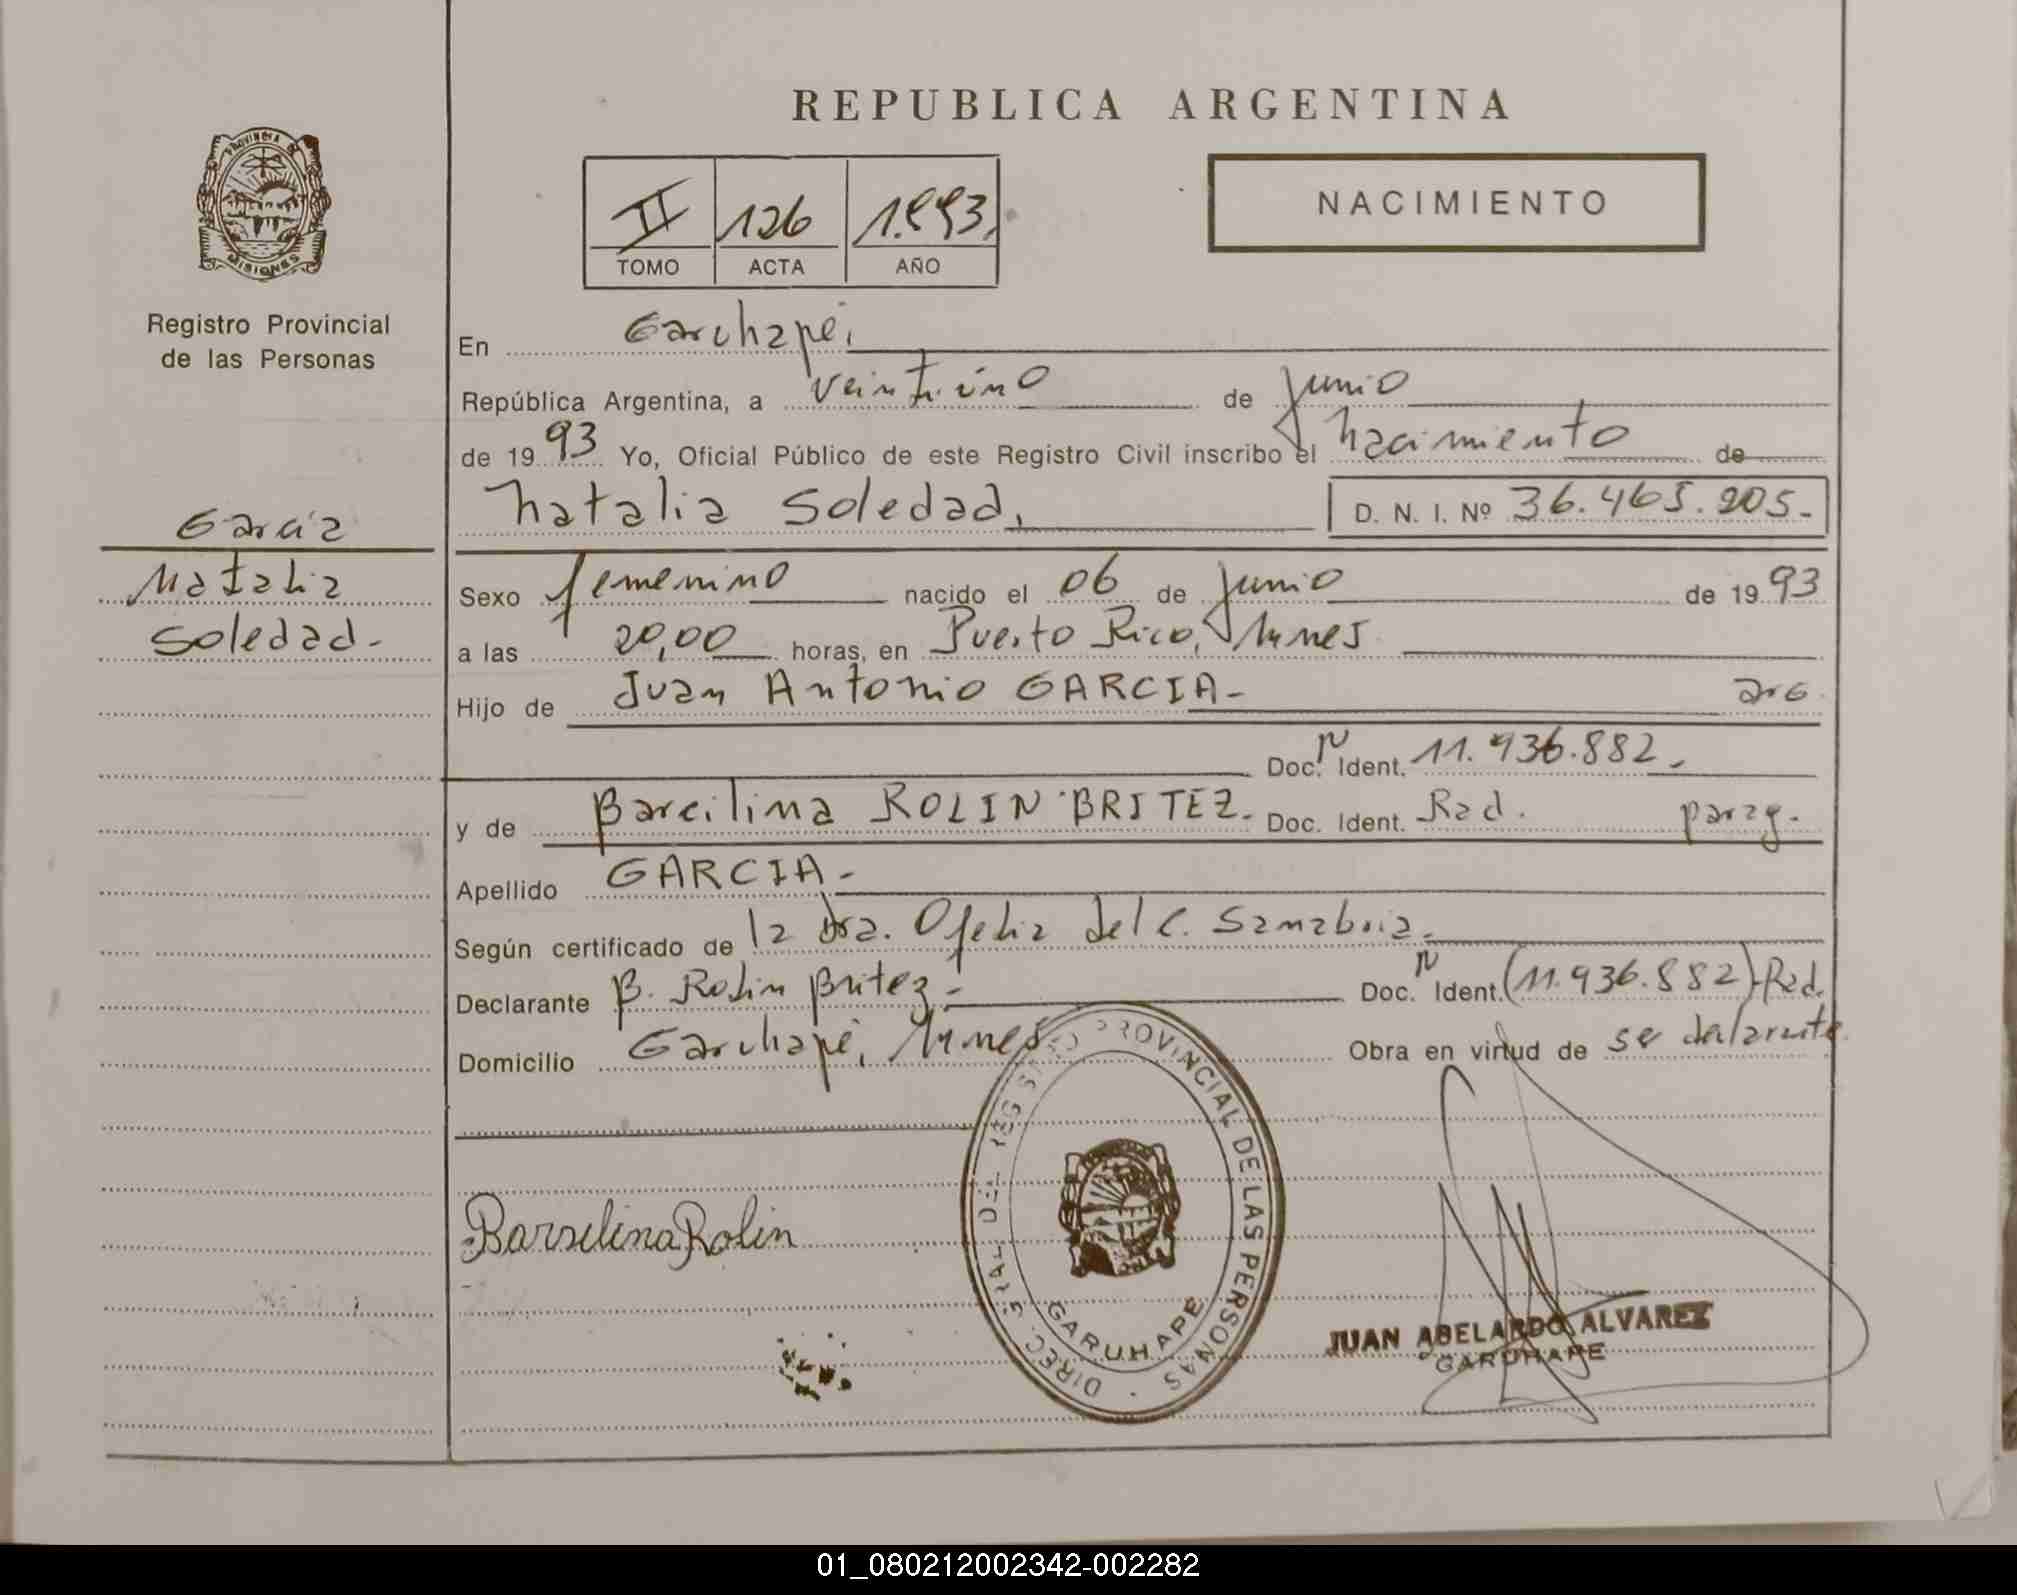 REPUBLICA ARGENTINA
PROVINCIA DE
MISIONES
Registro Provincial
de las Personas
II 126 1.993.
TOMO ACTA AÑO
NACIMIENTO
En Garuhapé,
República Argentina, a veintiuno de junio
de 19 93 Yo, Oficial Público de este Registro Civil inscribo el nacimiento de
Natalia Soledad, D. N. I. Nº 36.465.205.-
García
Natalia
Soledad.-
Sexo femenino nacido el 06 de junio de 19 93
a las 20,00 horas, en Puerto Rico,
Hijo de Juan Antonio GARCIA- arg.
Doc. N Ident. 11.936.882.-
y de Barcilina ROLIN BRITEZ. Doc. Ident. Rad. parag.
Apellido GARCIA-
Según certificado de la Dra. Ofelia del C. Sanabria.
Declarante B. Rolin Britez- Doc. N Ident. (11.936.882)-Rad.
Domicilio Garuhapé, Obra en virtud de ser declarante
Barsilina Rolin
DIREC. GRAL. DEL REGISTRO PROVINCIAL DE LAS PERSONAS
GARUHAPE
JUAN ABELARDO ALVAREZ
GARUHAPE
01_080212002342-002282